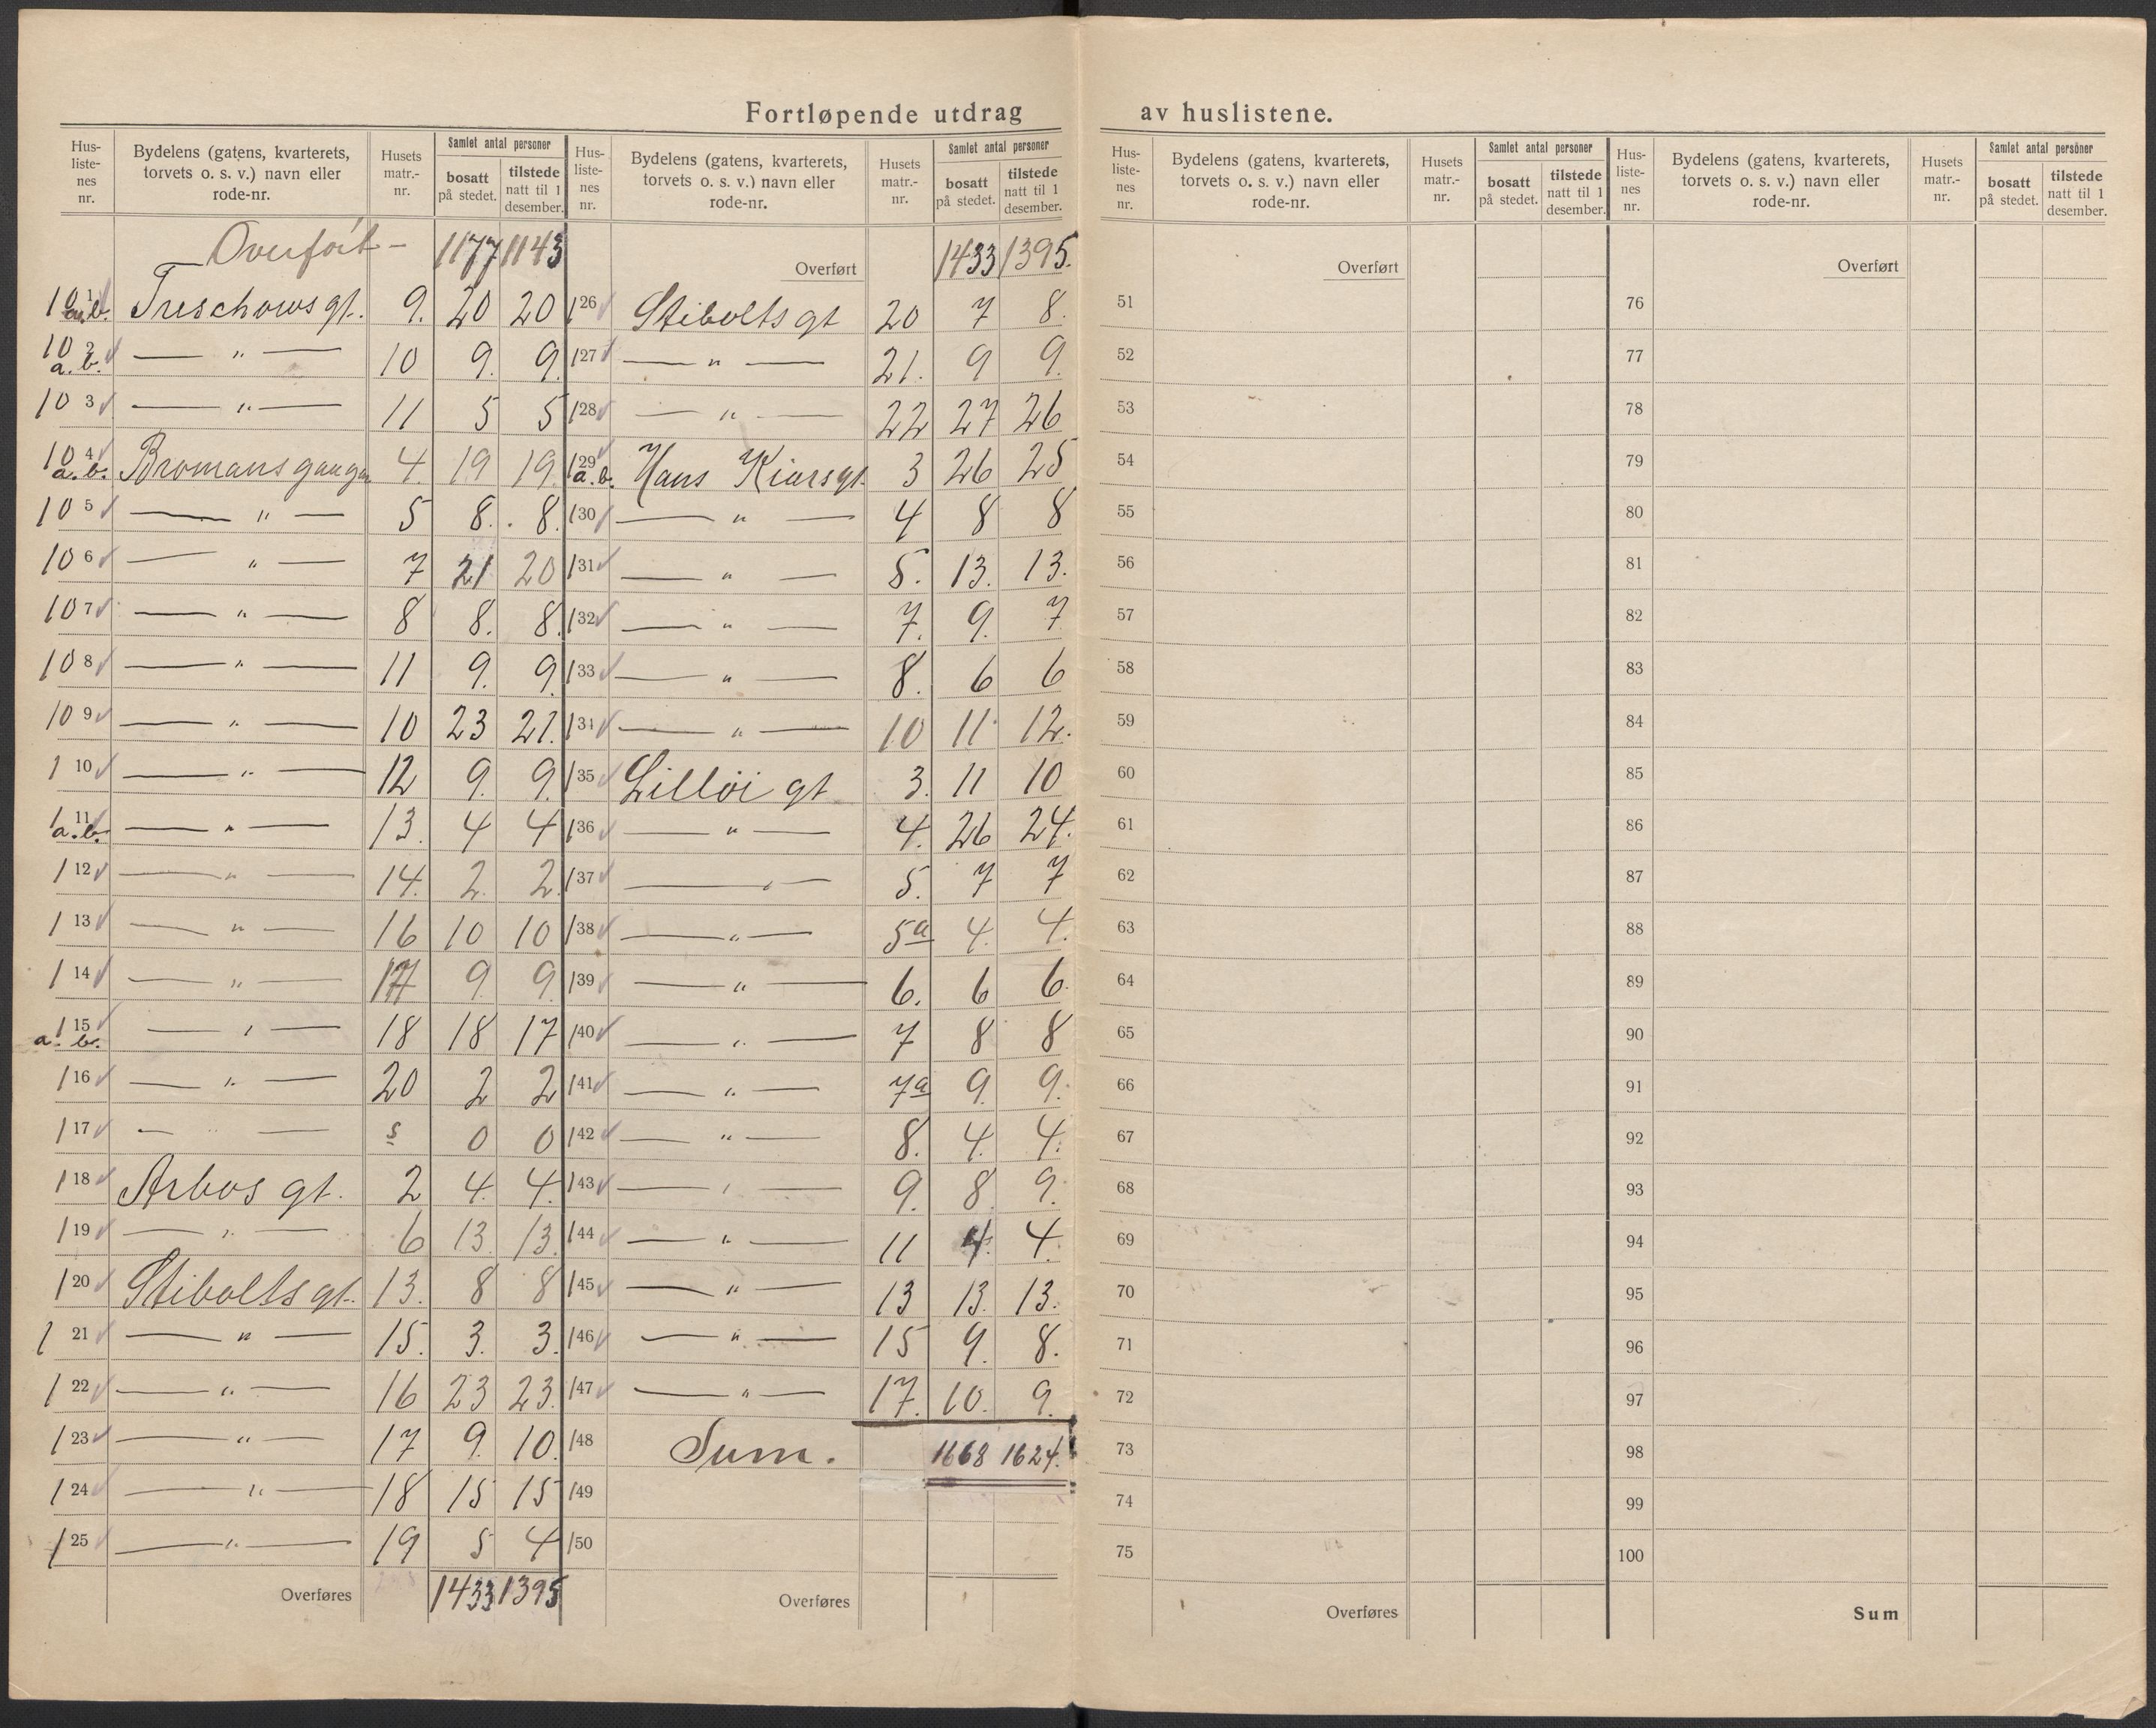 Fortløpende utdrag av huslistene.
Hus-liste-nes nr. | Bydelens (gatens, kvarterets, torvets o. s. v.) navn eller rode-nr. | Husets matr.-nr. | Samlet antal personer bosatt på stedet. | tilstede natt til 1 desember.
Overført – 1177 1143
101 a.b. Treschows gt. 9. 20 20
102 a.b. — " — 10 9. 9.
103 — " — 11 5 5
104 a.b. Bromans gangen 4. 19 19.
105 — " — 5 8. 8.
106 — " — 7 21 20
107 — " — 8 8. 8.
108 — " — 11 9. 9.
109 — " — 10 23 21.
110 — " — 12 9. 9.
111 a.b. — " — 13. 4 4
112 — " — 14. 2. 2.
113 — " — 16 10 10
114 — " — 17 9 9
115 a. b. — " — 18 18 17
116 — " — 20 2 2
117 — " — s 0 0
118 Arbos gt. 2 4. 4.
119 — " — 6 13. 13.
120 Stibolts gt. 13. 8 8
121 — " — 15. 3. 3.
122 — " — 16 23 23.
123 — " — 17 9. 10.
124 — " — 18 15 15
125 — " — 19 5 4
Overføres 1433 1395
Hus-liste-nes nr. | Bydelens (gatens, kvarterets, torvets o. s. v.) navn eller rode-nr. | Husets matr.-nr. | Samlet antal personer bosatt på stedet. | tilstede natt til 1 desember.
Overført 1433 1395.
126 Stibolts gt 20 7 8.
127 — " — 21. 9 9.
128 — " — 22 27 26
129 a.b. Hans Kiærs gt. 3 26 25
130 — " — 4 8 8
131 — " — 5. 13. 13.
132 — " — 7. 9. 7
133 — " — 8. 6 6
134 — " — 10 11 12.
135 Lilløi gt 3. 11 10
136 — " — 4. 26 24.
137 — " — 5. 7 7
138 — " — 5a 4. 4.
139 — " — 6. 6 6.
140 — " — 7 8 8
141 — " — 7a 9. 9.
142 — " — 8. 4. 4.
143 — " — 9. 8 9.
144 — " — 11 4. 4.
145 — " — 13 13. 13.
146 — " — 15 9. 8.
147 — " — 17. 10. 9.
148 Sum. 1668 1624.
149
150
Overføres
Hus-liste-nes nr. | Bydelens (gatens, kvarterets, torvets o. s. v.) navn eller rode-nr. | Husets matr.-nr. | Samlet antal personer bosatt på stedet. | tilstede natt til 1 desember.
Overført
51
52
53
54
55
56
57
58
59
60
61
62
63
64
65
66
67
68
69
70
71
72
73
74
75
Overføres
Hus-liste-nes nr. | Bydelens (gatens, kvarterets, torvets o. s. v.) navn eller rode-nr. | Husets matr.-nr. | Samlet antal personer bosatt på stedet. | tilstede natt til 1 desember.
Overført
76
77
78
79
80
81
82
83
84
85
86
87
88
89
90
91
92
93
94
95
96
97
98
99
100
Sum